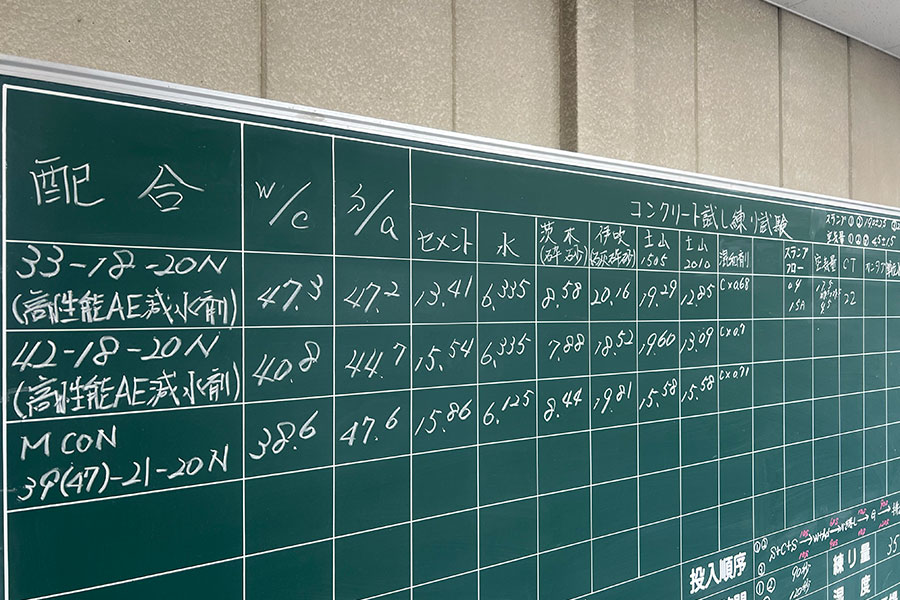 配合 W/C S/a コンクリート試し練り試験
セメント 水 茨木 伊吹 土山 土山 混和剤 スランプ 空気量 CT
(砕砂) (石灰砕砂) 1505 2010 フロー
33-18-20N 47.3 47.2 13.41 6.335 8.58 20.16 19.29 12.85 C×0.68
(高性能AE減水剤)
42-18-20N 40.8 44.7 15.54 6.335 7.88 18.52 19.60 13.09 C×0.7
(高性能AE減水剤)
M CON 38.6 47.6 15.86 6.125 8.44 19.81 15.58 15.58 C×0.71
39(47)-21-20N
投入順序
90秒
120秒
練り量 35
温度